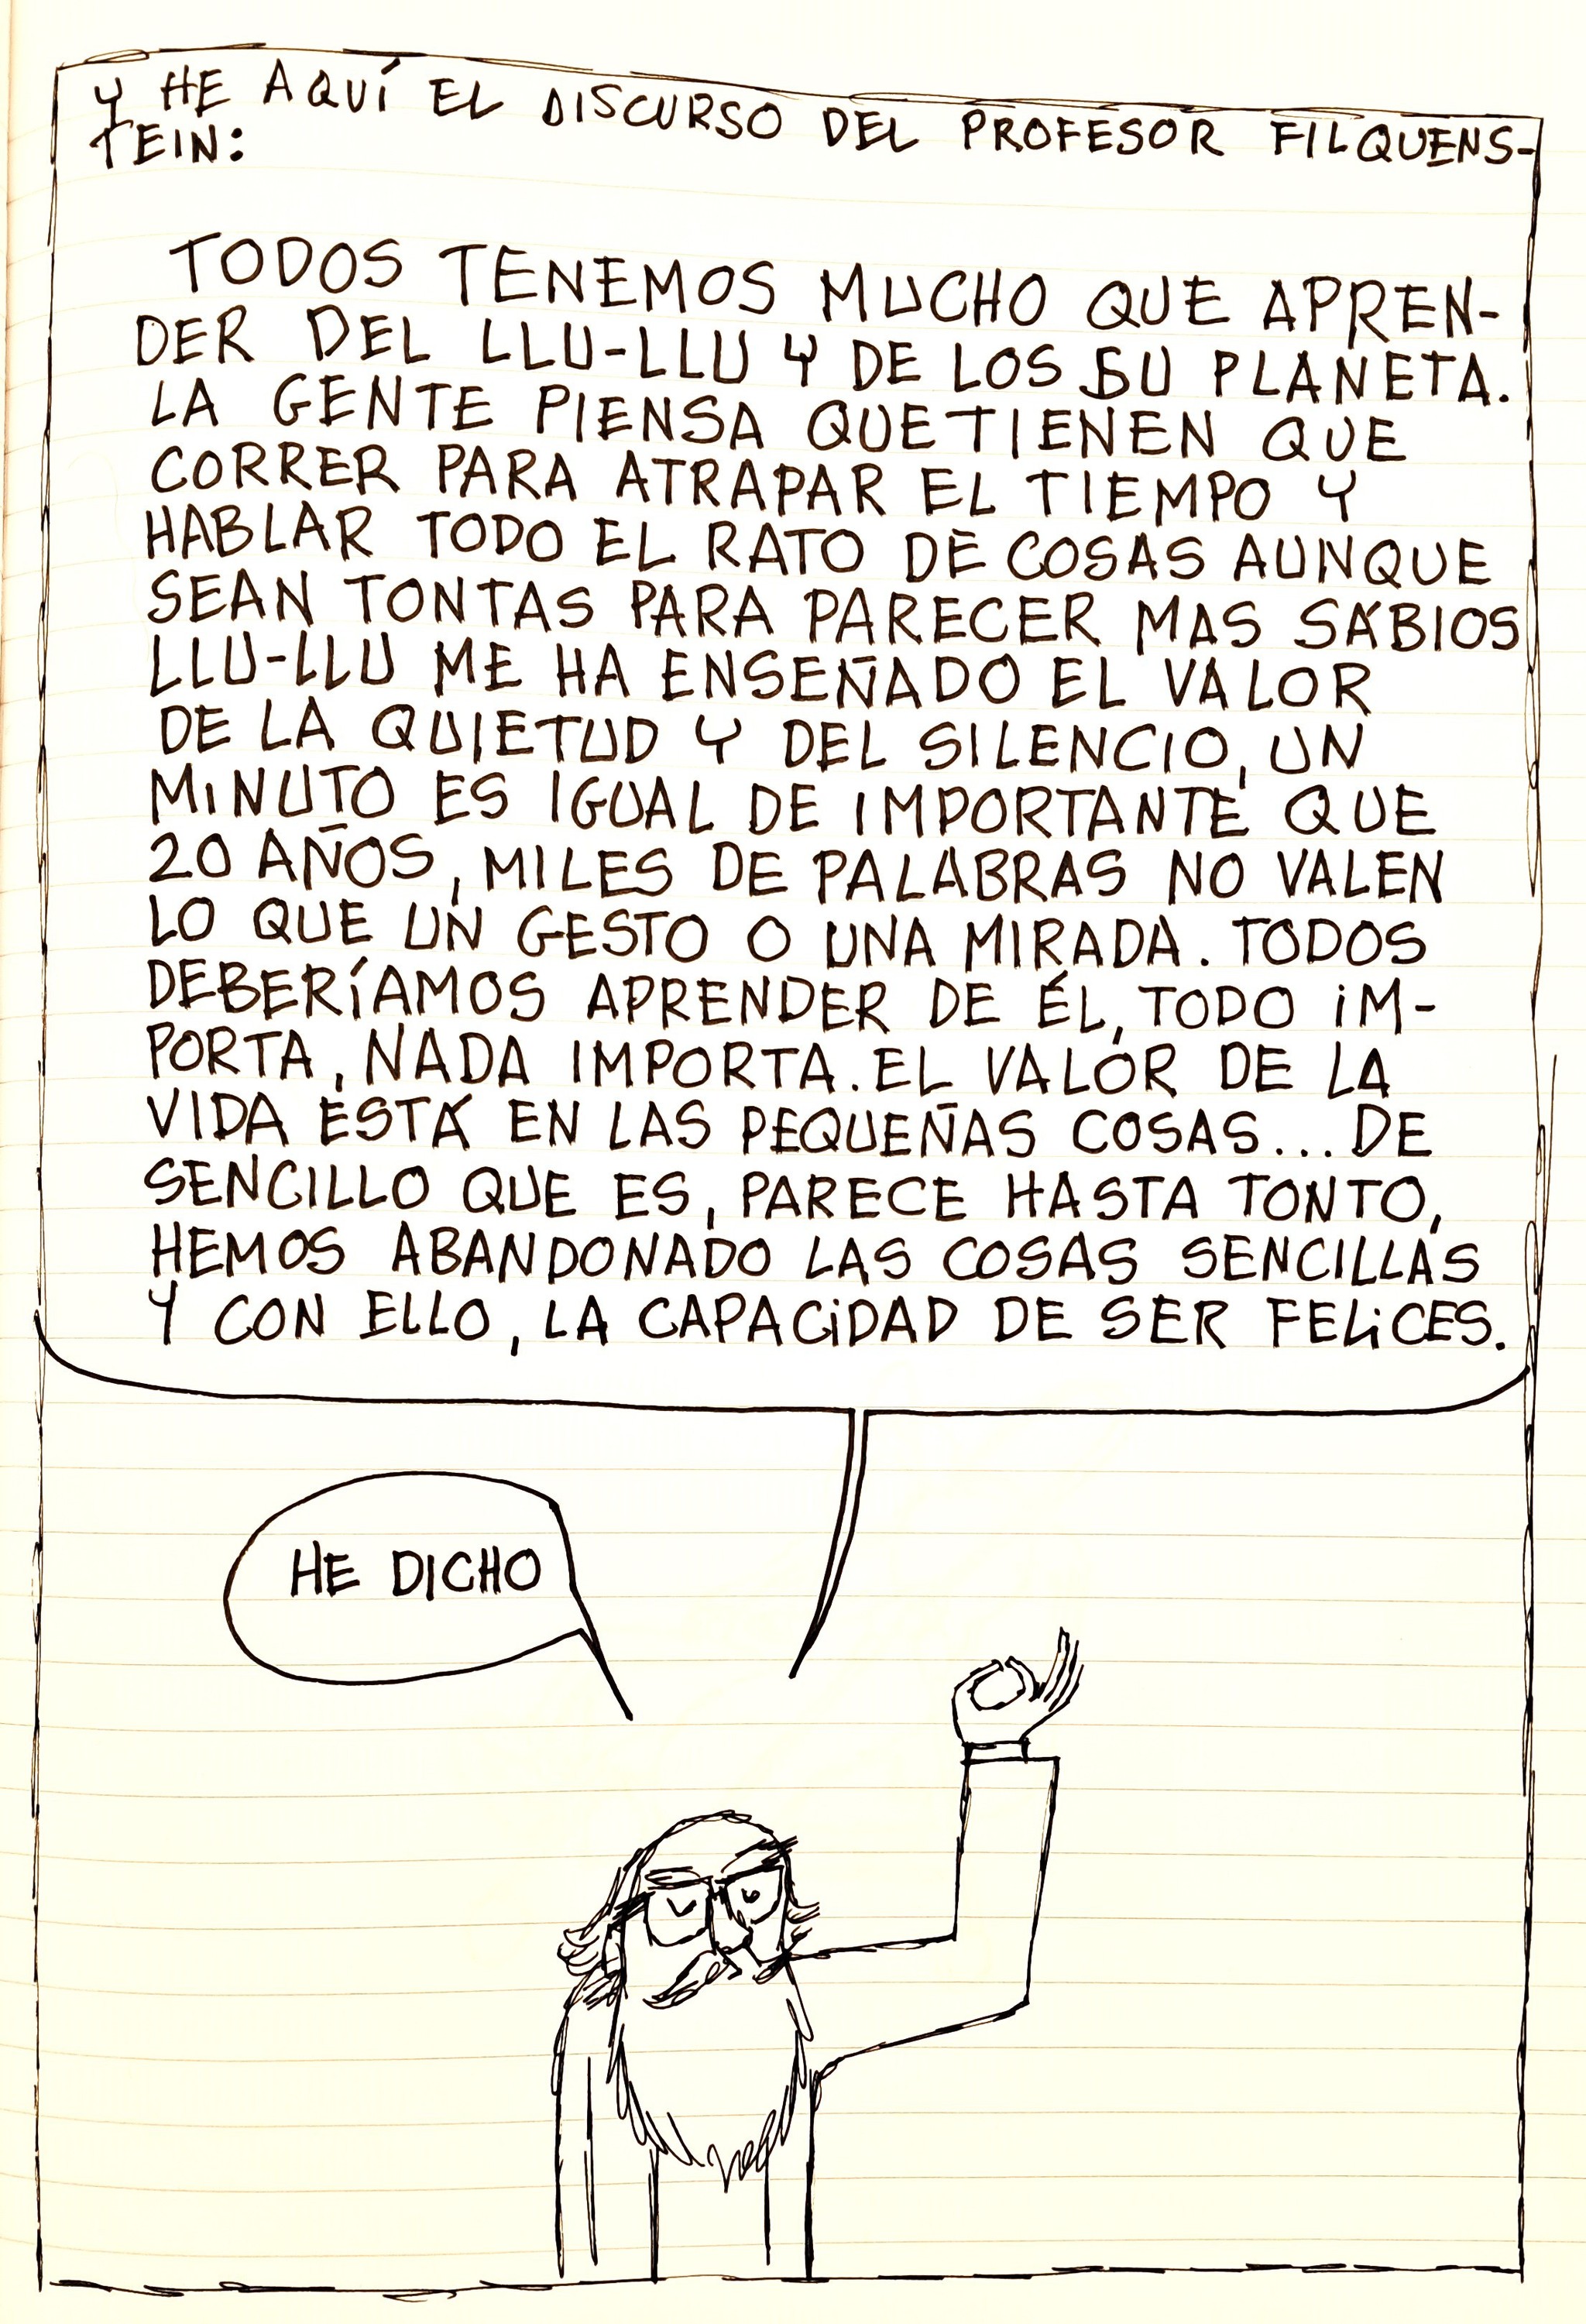 Y HE AQUÍ EL DISCURSO DEL PROFESOR FILQUENS-
TEIN:
TODOS TENEMOS MUCHO QUE APREN-
DER DEL LLU-LLU Y DE LOS SU PLANETA.
LA GENTE PIENSA QUE TIENEN QUE
CORRER PARA ATRAPAR EL TIEMPO Y
HABLAR TODO EL RATO DE COSAS AUNQUE
SEAN TONTAS PARA PARECER MAS SÁBIOS
LLU-LLU ME HA ENSEÑADO EL VALOR
DE LA QUIETUD Y DEL SILENCIO, UN
MINUTO ES IGUAL DE IMPORTANTE QUE
20 AÑOS, MILES DE PALABRAS NO VALEN
LO QUE UN GESTO O UNA MIRADA. TODOS
DEBERÍAMOS APRENDER DE ÉL, TODO IM-
PORTA, NADA IMPORTA. EL VALOR DE LA
VIDA ESTÁ EN LAS PEQUEÑAS COSAS... DE
SENCILLO QUE ES, PARECE HASTA TONTO,
HEMOS ABANDONADO LAS COSAS SENCILLAS
Y CON ELLO, LA CAPACIDAD DE SER FELICES.
HE DICHO